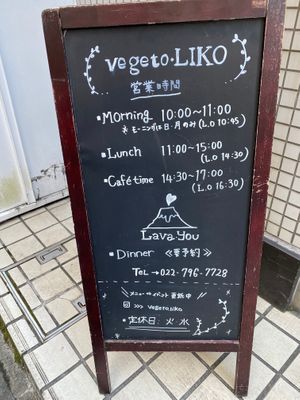 vegeto・LIKO
営業時間
・Morning 10:00〜11:00
※モーニングは日・月のみ (L.O 10:45)
・Lunch 11:00〜15:00
(L.O 14:30)
・Cafétime 14:30〜17:00
(L.O 16:30)
Lava you
・Dinner 《要予約》
Tel→022-796-7728
メニューやイベント更新中
>>> vegeto.liko
・定休日 火 水